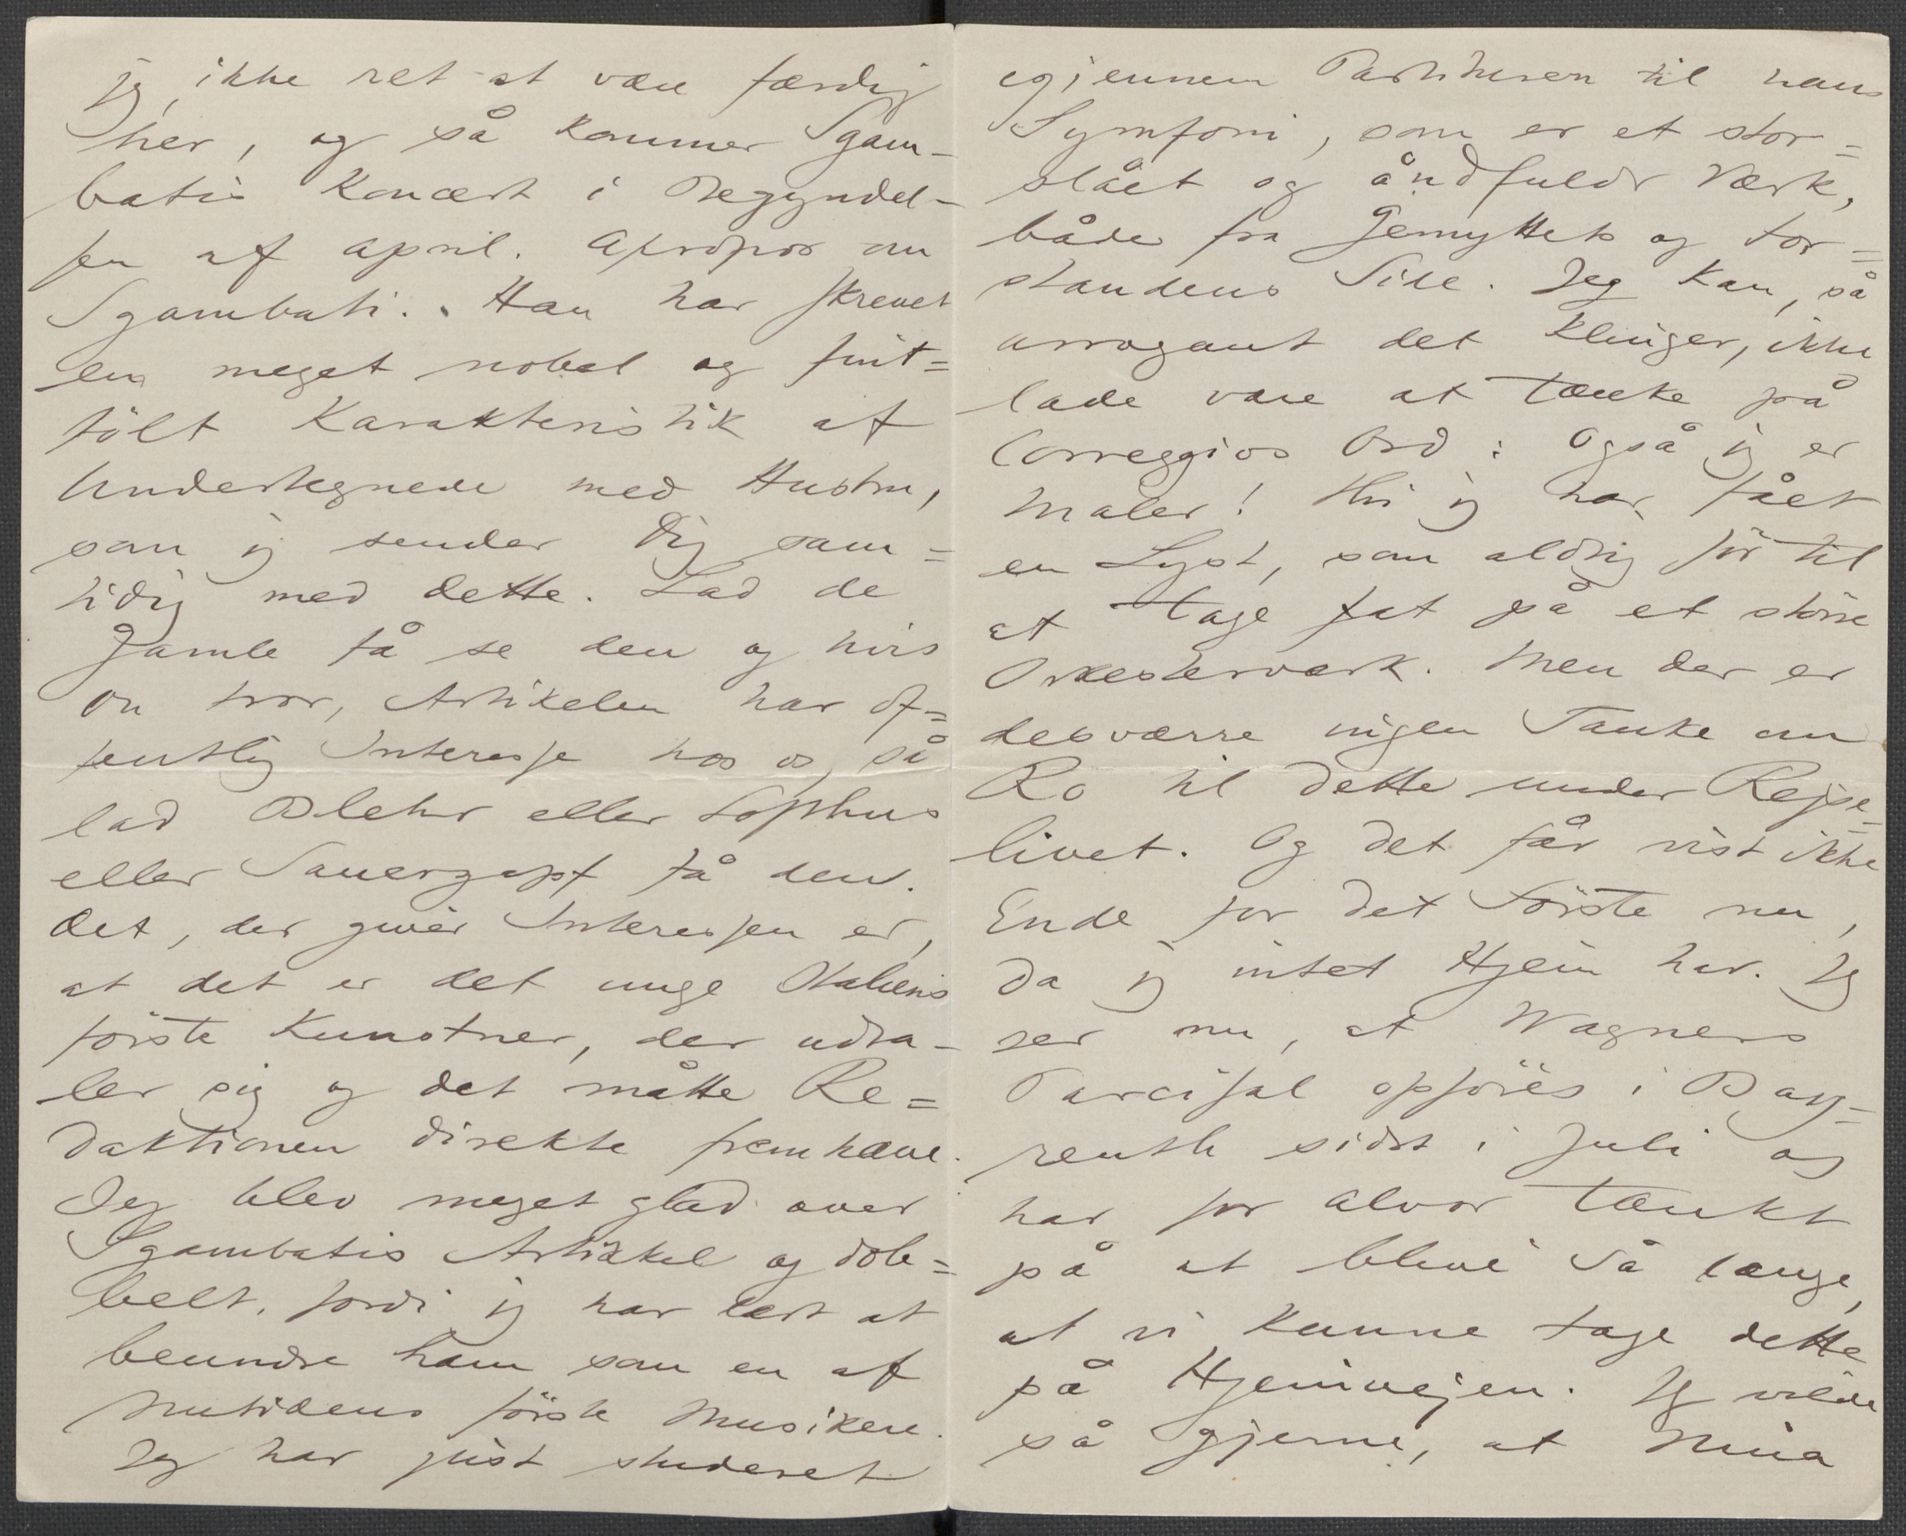 jeg ikke ret at være færdig
her, og så kommer Sgam-
batis Koncert i Begyndel-
sen af April. Apropos om
Sgambati. Han har skrevet
en meget nobel og fint=
følt Karakteristik af
Undertegnede med Hustru,
som jeg sender Dig sam=
tidig med dette. Lad de
Gamle få se den og hvis
Du tror, Artikelen har of=
fentlig Interesse hos os, så
lad Blehr eller Sophus
eller Sauerzapf få den.
Det, der giver Interessen er,
at det er det unge Italiens
første Kunstner, der udta-
ler sig og det måtte Re=
daktionen direkte fremhæve.
Jeg blev meget glad over
Sgambatis Artikkel og dob=
belt, fordi jeg har lært at
beundre ham som en af
Nutidens første Musikere.
Jeg har just studeret
igjennem Partituren til hans
Symfoni, som er et stor=
slået og åndfuldt Værk,
både fra Gemyttets og For=
standens Side. Jeg kan, så
arrogant det klinger, ikke
lade være at tænke på
Correggios Ord: Også jeg er
Maler! Thi jeg har fået
en Lyst, som aldrig før til
at tage fat på et større
Orkesterværk. Men der er
desværre ingen Tanke om
Ro til dette under Rejse-
livet. Og det får vist ikke
Ende for det Første nu,
da jeg intet Hjem har. Jeg
ser nu, at Wagners
Parcifal opføres i Bay-
reuth sidst i Juli og
har for alvor tænkt
på at blive så længe,
at vi kunne tage dette
på Hjemvejen. Jeg vilde
så gjerne, at Nina